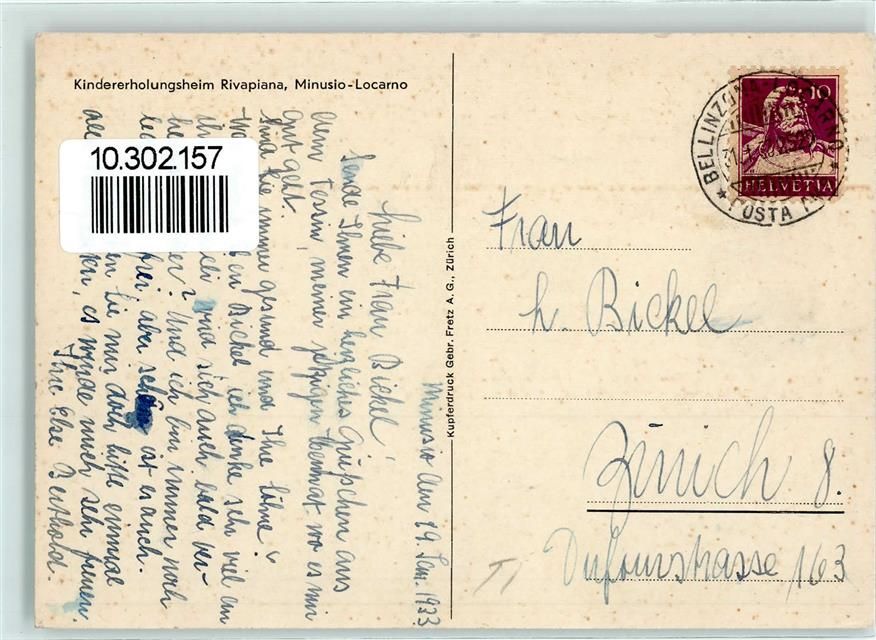 Kindererholungsheim Rivapiana, Minusio-Locarno
10.302.157
Minusio den 29. Jan. 1933
Liebe Frau Bickel!
Sende Ihnen ein herzliches Grüsschen aus
dem Tessin, meiner jetzigen Heimat wo es mir
gut geht.
Sind Sie immer gesund und Ihre Söhne?
Bickel ich denke sehr viel an
und sich auch bald ver-
? Und ich bin immer noch
frei aber schön ist es auch.
Sie mir doch bitte einmal
es würde mich sehr freuen.
Ihre Else Berthold.
Kupferdruck Gebr. Fretz A. G., Zürich
BELLINZONA-LOCARNO
POSTA
10
HELVETIA
Frau
H. Bickel
Zürich 8.
Dufourstrasse 163